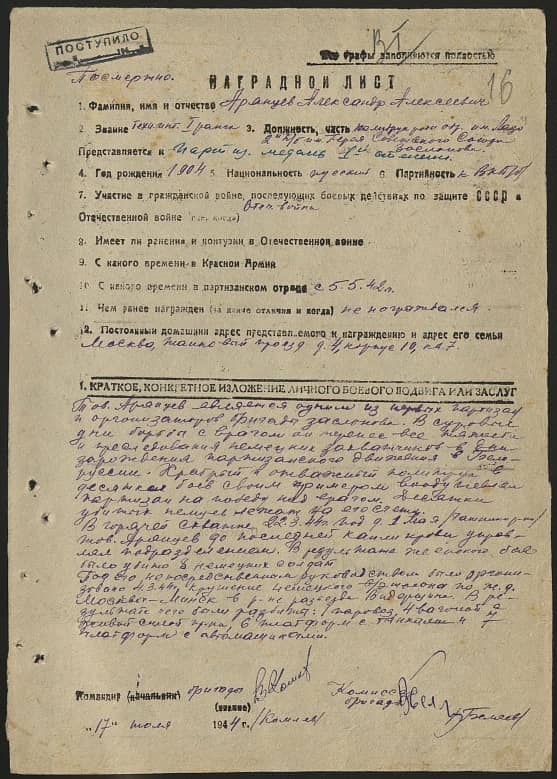 ПОСТУПИЛО
Все графы заполняются полностью
Посмертно.
НАГРАДНОЙ ЛИСТ
16
1. Фамилия, имя и отчество Аранцев Александр Алексеевич
2. Звание Техн.инт. 1 ранга 3. Должность, часть политрук роты отр. им. Лазо
2 п/б им. Героя Советского Союза Заслонова
Представляется к Парт из. медаль I ой степени.
4. Год рождения 1904 5. Национальность русский 6. Партийность к ВКП(б)
7. Участие в гражданской войне, последующих боевых действиях по защите СССР и
Отечественной войне (где, когда) Отеч. война
8. Имеет ли ранения и контузии в Отечественной войне
9. С какого времени в Красной Армии
10. С какого времени в партизанском отряде с 5.5.42 г.
11. Чем ранее награжден (за какие отличия и когда) не награждался.
12. Постоянный домашний адрес представляемого к награждению и адрес его семьи
Москва, проезд д. 4, корпус 10, кв. 7.
1. КРАТКОЕ, КОНКРЕТНОЕ ИЗЛОЖЕНИЕ ЛИЧНОГО БОЕВОГО ПОДВИГА ИЛИ ЗАСЛУГ
Тов. Аранцев является одним из первых партизан
и организаторов бригады Заслонова. В суровые
дни борьбы с врагом он перенес все тяжести
и преследования немецких захватчиков в дни
зарождения партизанского движения в Бело-
руссии. Храбрый и отважный политрук в
десятках боев своим примером воодушевлял
партизан на победу над врагом. Десятки
убитых немцев лежат на его счету.
В горячей схватке 22.3.44 г. под д. 1 Мая
тов. Аранцев до последней капли крови управ-
лял подразделением. В результате жестокого боя
было убито 8 немецких солдат
Под его непосредственным руководством было органи-
зовано 4.3.43 г. крушение немецкого эшелона по ж.д.
Москва - Минск в р-не разъезда В ре-
зультате чего были разбиты: паровоз, 4 вагона с
живой силой пр-ка 6 платформ с танками и 7
платформ с автомашинами.
Командир (начальник) бригады
(звание)
Комиссар
бригады
"17" июля 1944 г.